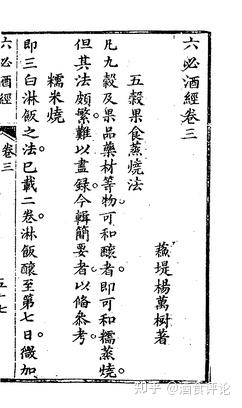 六必酒經卷三
蘓堤楊萬树著
五穀果食蒸燒法
凡九穀及果品藥材等物可和醸者即可和糯蒸燒
但其法頗繁難以盡録今輯簡要者以俻叅考
糯米燒
即三白淋飯之法已載二卷淋飯釀至第七日微加
六必酒經
卷三
五十七
知乎 @酒食评论